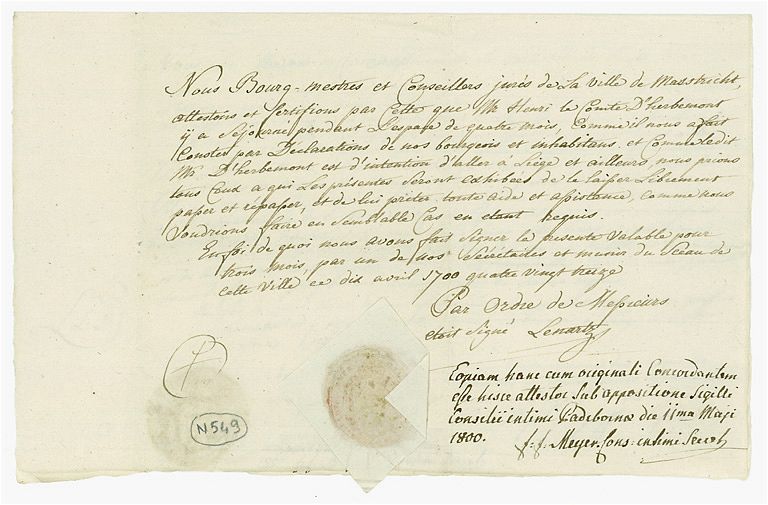 Nous Bourg-mestres et Conseillers jurés de La Ville de Mastricht,
attestons et Certifions par Cette que Mr Henri le Comte D'herbemont
ÿ a Sejourné pendant L'espace de quatre mois, Comme il nous a fait
Conster par Déclarations de nos bourgeois et inhabitans, et Comme ledit
Mr D'herbemont est d'intention d'aller à Liège et ailleurs, nous prions
tous Ceux a qui Les presentes Seront exhibées de le laisser Librement
passer et repasser, et de lui prêter toute aide et assistance, comme nous
Voudrions faire en Semblable Cas en etant requis.
En foi de quoi nous avons fait Signer la presente Valable pour
trois mois, par un de nos Sécrétaires et munir du Sceau de
cette Ville ce dix avril 1700 quatre vingt treize
Par Ordre de Messieurs
etoit Signé Lenartz
Copiam hanc cum originali Concordantem
esse hisce attestor Sub appositione Sigilli
Consilii intimi Paderbornæ die 11ma Maji
1800.
Meyer Cons: intimi Secret
N549